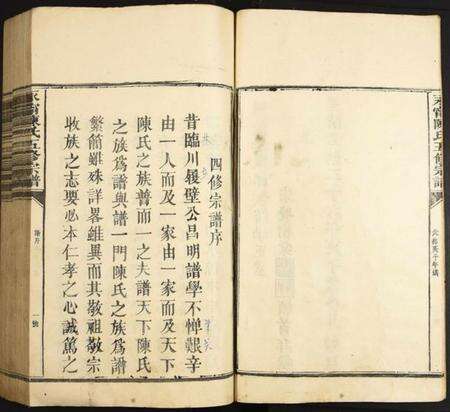 永甯陳氏五修宗譜
四修宗譜序
昔臨川履壁公昌明譜學不憚艱辛
由一人而及一家由一家而及天下
陳氏之族普而一之夫譜天下陳氏
之族爲譜與譜一門陳氏之族爲譜
繁簡雖殊詳畧雖異而其敬祖敬宗
收族之志要必本仁孝之心誠篤之
永甯陳氏五修宗譜